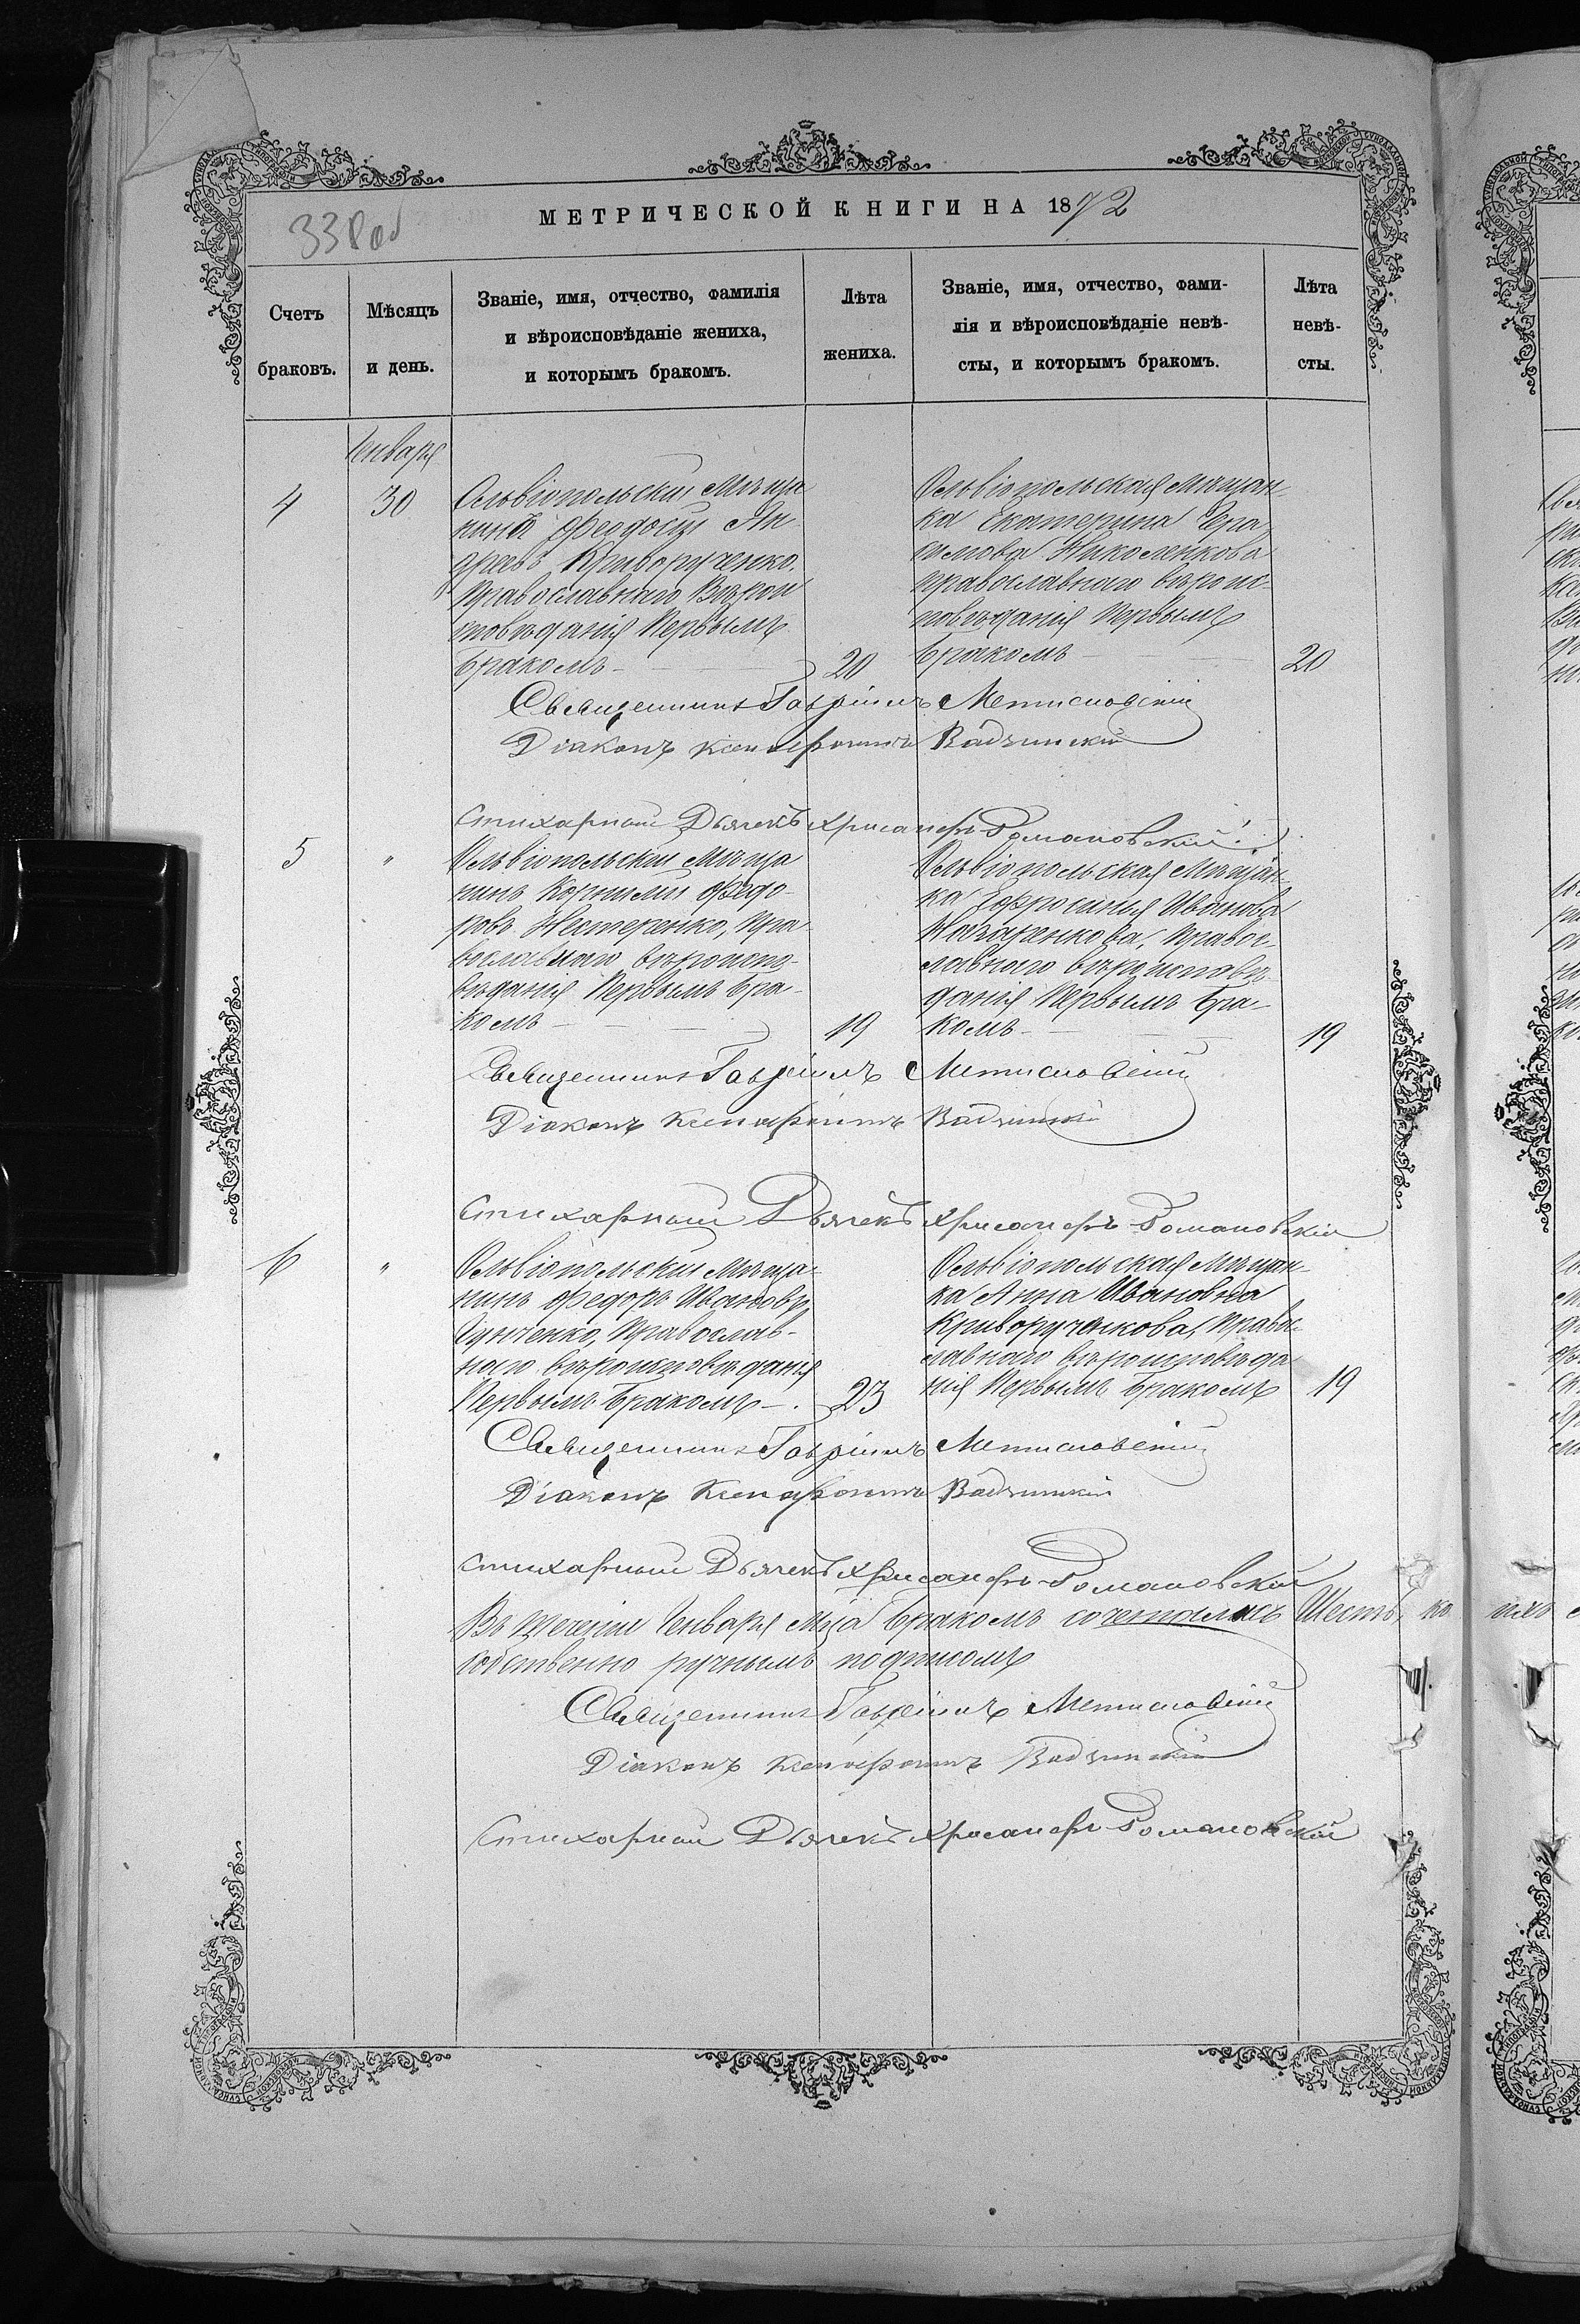 МЕТРИЧЕСКОЙ КНИГИ НА 1872
338 об
Счетъ браковъ.
Мѣсяцъ и день.
Званіе, имя, отчество, фамилія
и вѣроисповѣданіе жениха,
и которымъ бракомъ.
Лѣта жениха.
Званіе, имя, отчество, фами-
лія и вѣроисповѣданіе невѣ-
сты, и которымъ бракомъ.
Лѣта невѣ-
сты.
Генваря
4
30
Ольвіопольскій Мѣща
нинъ Феодосій Ан
дреевъ Криворученко,
Православнаго Вѣрои
споведанія Первымъ
бракомъ
20
Ольвіопольская Мѣщан-
ка Екатерина Гера
симова Николенкова
православнаго вѣроис-
поведанія Первымъ
бракомъ
20
Священникъ Гавріилъ
Діаконъ Ксенофонтъ
Стихарный Дьячекъ Хрисанфъ Романовскій
5
"
Ольвіопольскій Мѣща
нинъ Корнилій Федо-
ровъ Нестеренко, Пра
вославнаго вѣроиспо-
вѣданія Первымъ бра-
комъ
19
Ольвіопольская Мѣщан-
ка Ефросинія Иванова
Назаренкова, Правос-
лавнаго вѣроисповѣ-
данія Первымъ бра-
комъ
19
Священникъ Гавріилъ
Діаконъ Ксенофонтъ
Стихарный Дьячекъ Хрисанфъ Романовскій
6
"
Ольвіопольскій Мѣща-
нинъ Федоръ Ивановъ
Православ-
наго вѣроисповѣданія
Первымъ бракомъ
23
Ольвіопольская Мѣщан-
ка Анна Ивановна
Криворученкова, Правос-
лавнаго вѣроисповѣда
нія Первымъ бракомъ
19
Священникъ Гавріилъ
Діаконъ Ксенофонтъ
Стихарный Дьячекъ Хрисанфъ Романовскій
Въ теченіи Генваря М-ца бракомъ сочеталась Шесть,
собственно ручнымъ подписомъ
Священникъ Гавріилъ
Діаконъ Ксенофонтъ
Стихарный Дьячекъ Хрисанфъ Романовскій